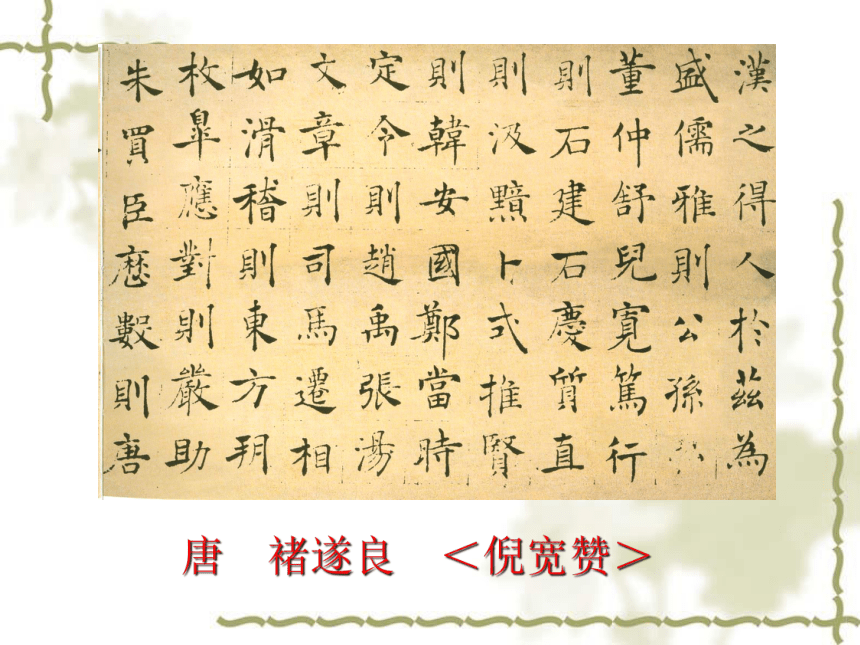 漢之得人於茲為
盛儒雅則公孫
董仲舒兒寬篤行
則石建石慶質直
則汲黯卜式推賢
則韓安國鄭當時
定令則趙禹張湯
文章則司馬遷相
如滑稽則東方朔
枚皐應對則嚴助
朱買臣歷數則唐
唐 褚遂良 <倪宽赞>